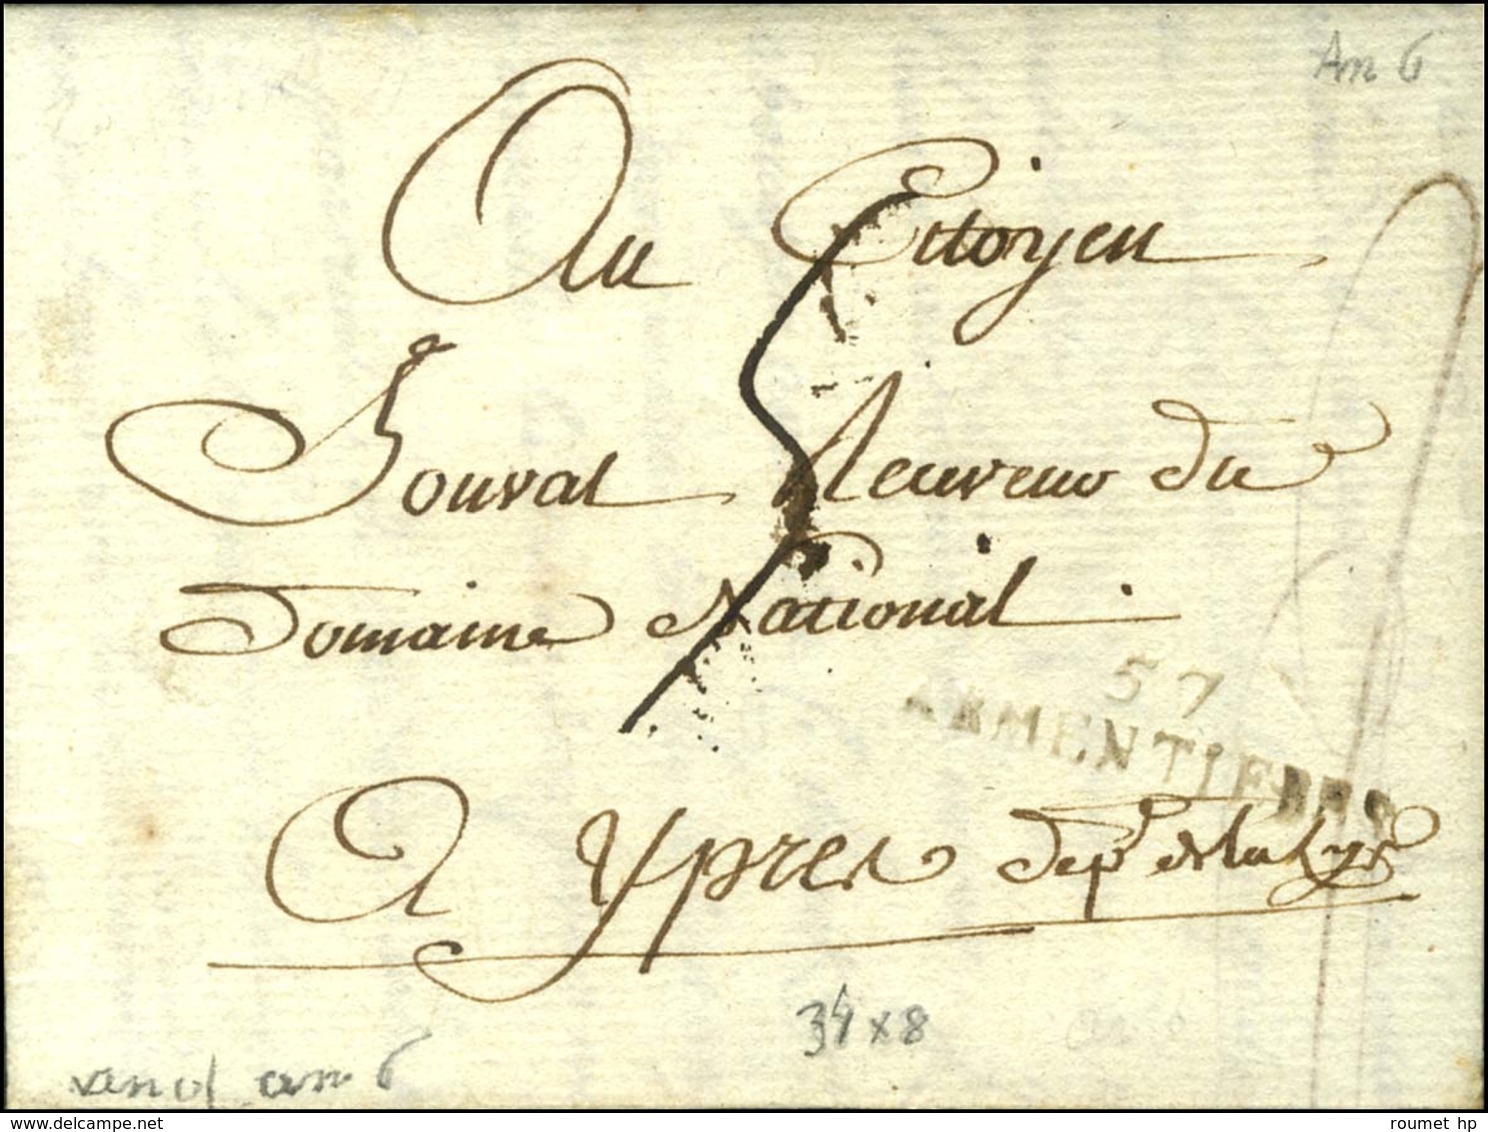 An 6
Au Citoyen
Bouval Receveur du
Domaine National
57
ARMENTIERES
A Ypres dep^t de la Lys
34 x 8
an 6
an 6
roumet hp